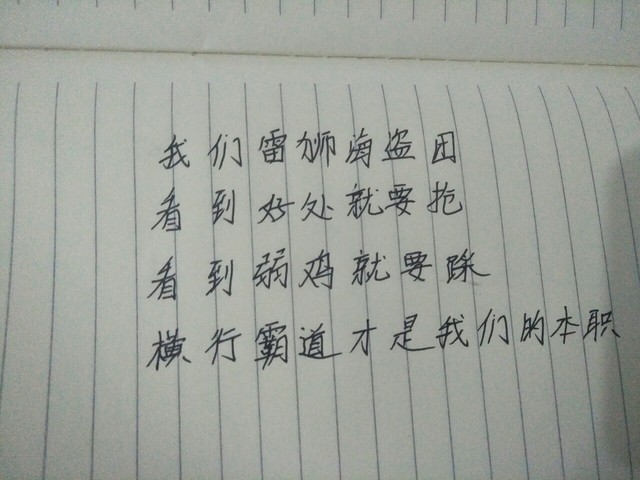 我们雷狮海盗团
看到好处就要抢
看到弱鸡就要踩
横行霸道才是我们的本职